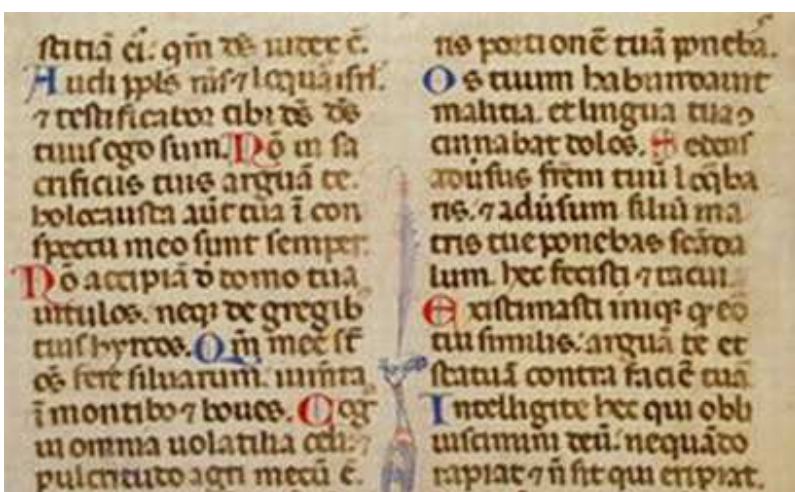 stitiã ei: qm̃ ds̃ iudex ẽ.
Audi ppls ms̃ ⁊ loquar isrl̃.
⁊ testificabor tibi ds̃ ds̃
tuus ego sum. Nõ in sa
crificiis tuis arguã te.
holocausta aũt tua ĩ con
spectu meo sunt semper.
Nõ accipiã d̃ domo tua
uitulos. neqꝫ de gregib
tuis hyrcos. Qm̃ mee st̃
oẽs fere siluarum. iumẽta
ĩ montibꝫ ⁊ boues. Cog
ui omnia uolatilia celi. ⁊
pulcritudo agri mecũ ẽ.
ris portionẽ tuã poneba.
Os tuum habundauit
malitia. et lingua tua ꝯ
cinnabat dolos. Sedens
adũsus frẽm tuũ loq̃ba
ris. ⁊ adũsum filiũ ma
tris tue ponebas scãda
lum. hec fecisti ⁊ tacui.
Existimasti iniqꝫ q̃ eõ
tui similis. arguã te et
statuã contra faciẽ tuã
Intelligite hec qui obli
uiscimini deũ. nequãdo
rapiat ⁊ ñ sit qui eripiat.